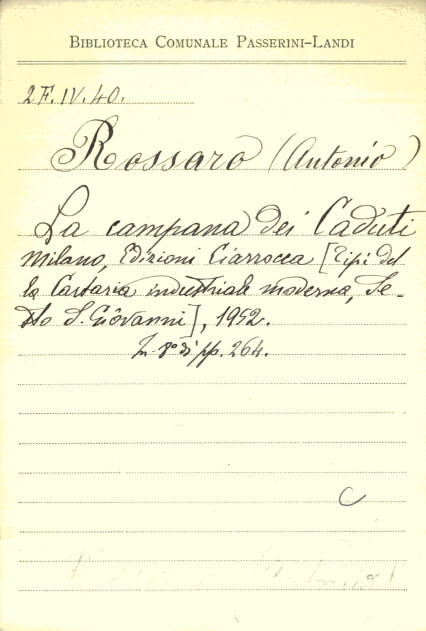 BIBLIOTECA COMUNALE PASSERINI-LANDI
2F.IV.40.
Rossaro (Antonio)
La campana dei Caduti
Milano, Edizioni Ciarrocca [Tipi del
la Cartaria industriale moderna, Se-
sto S. Giovanni], 1952.
In 8° di pp. 264.
C